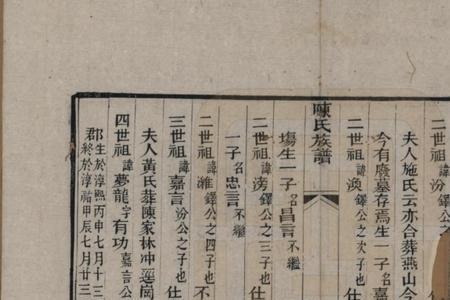 二世祖諱汾鐸公
夫人施氏云亦合葬燕山今
今有廢墓存焉生一子名
二世祖諱渙鐸公之次子也
陳氏族譜
塲生一子名昌言不繼
二世祖諱滂鐸公之三子也仕
一子名忠言不繼
二世祖諱濰鐸公之四子也不
三世祖諱嘉言汾公之子也仕
夫人黃氏葬陳家林冲
四世祖諱夢龍字有功嘉言公
郡生於淳熙丙申七月十三
終於淳祐甲辰七月廿三